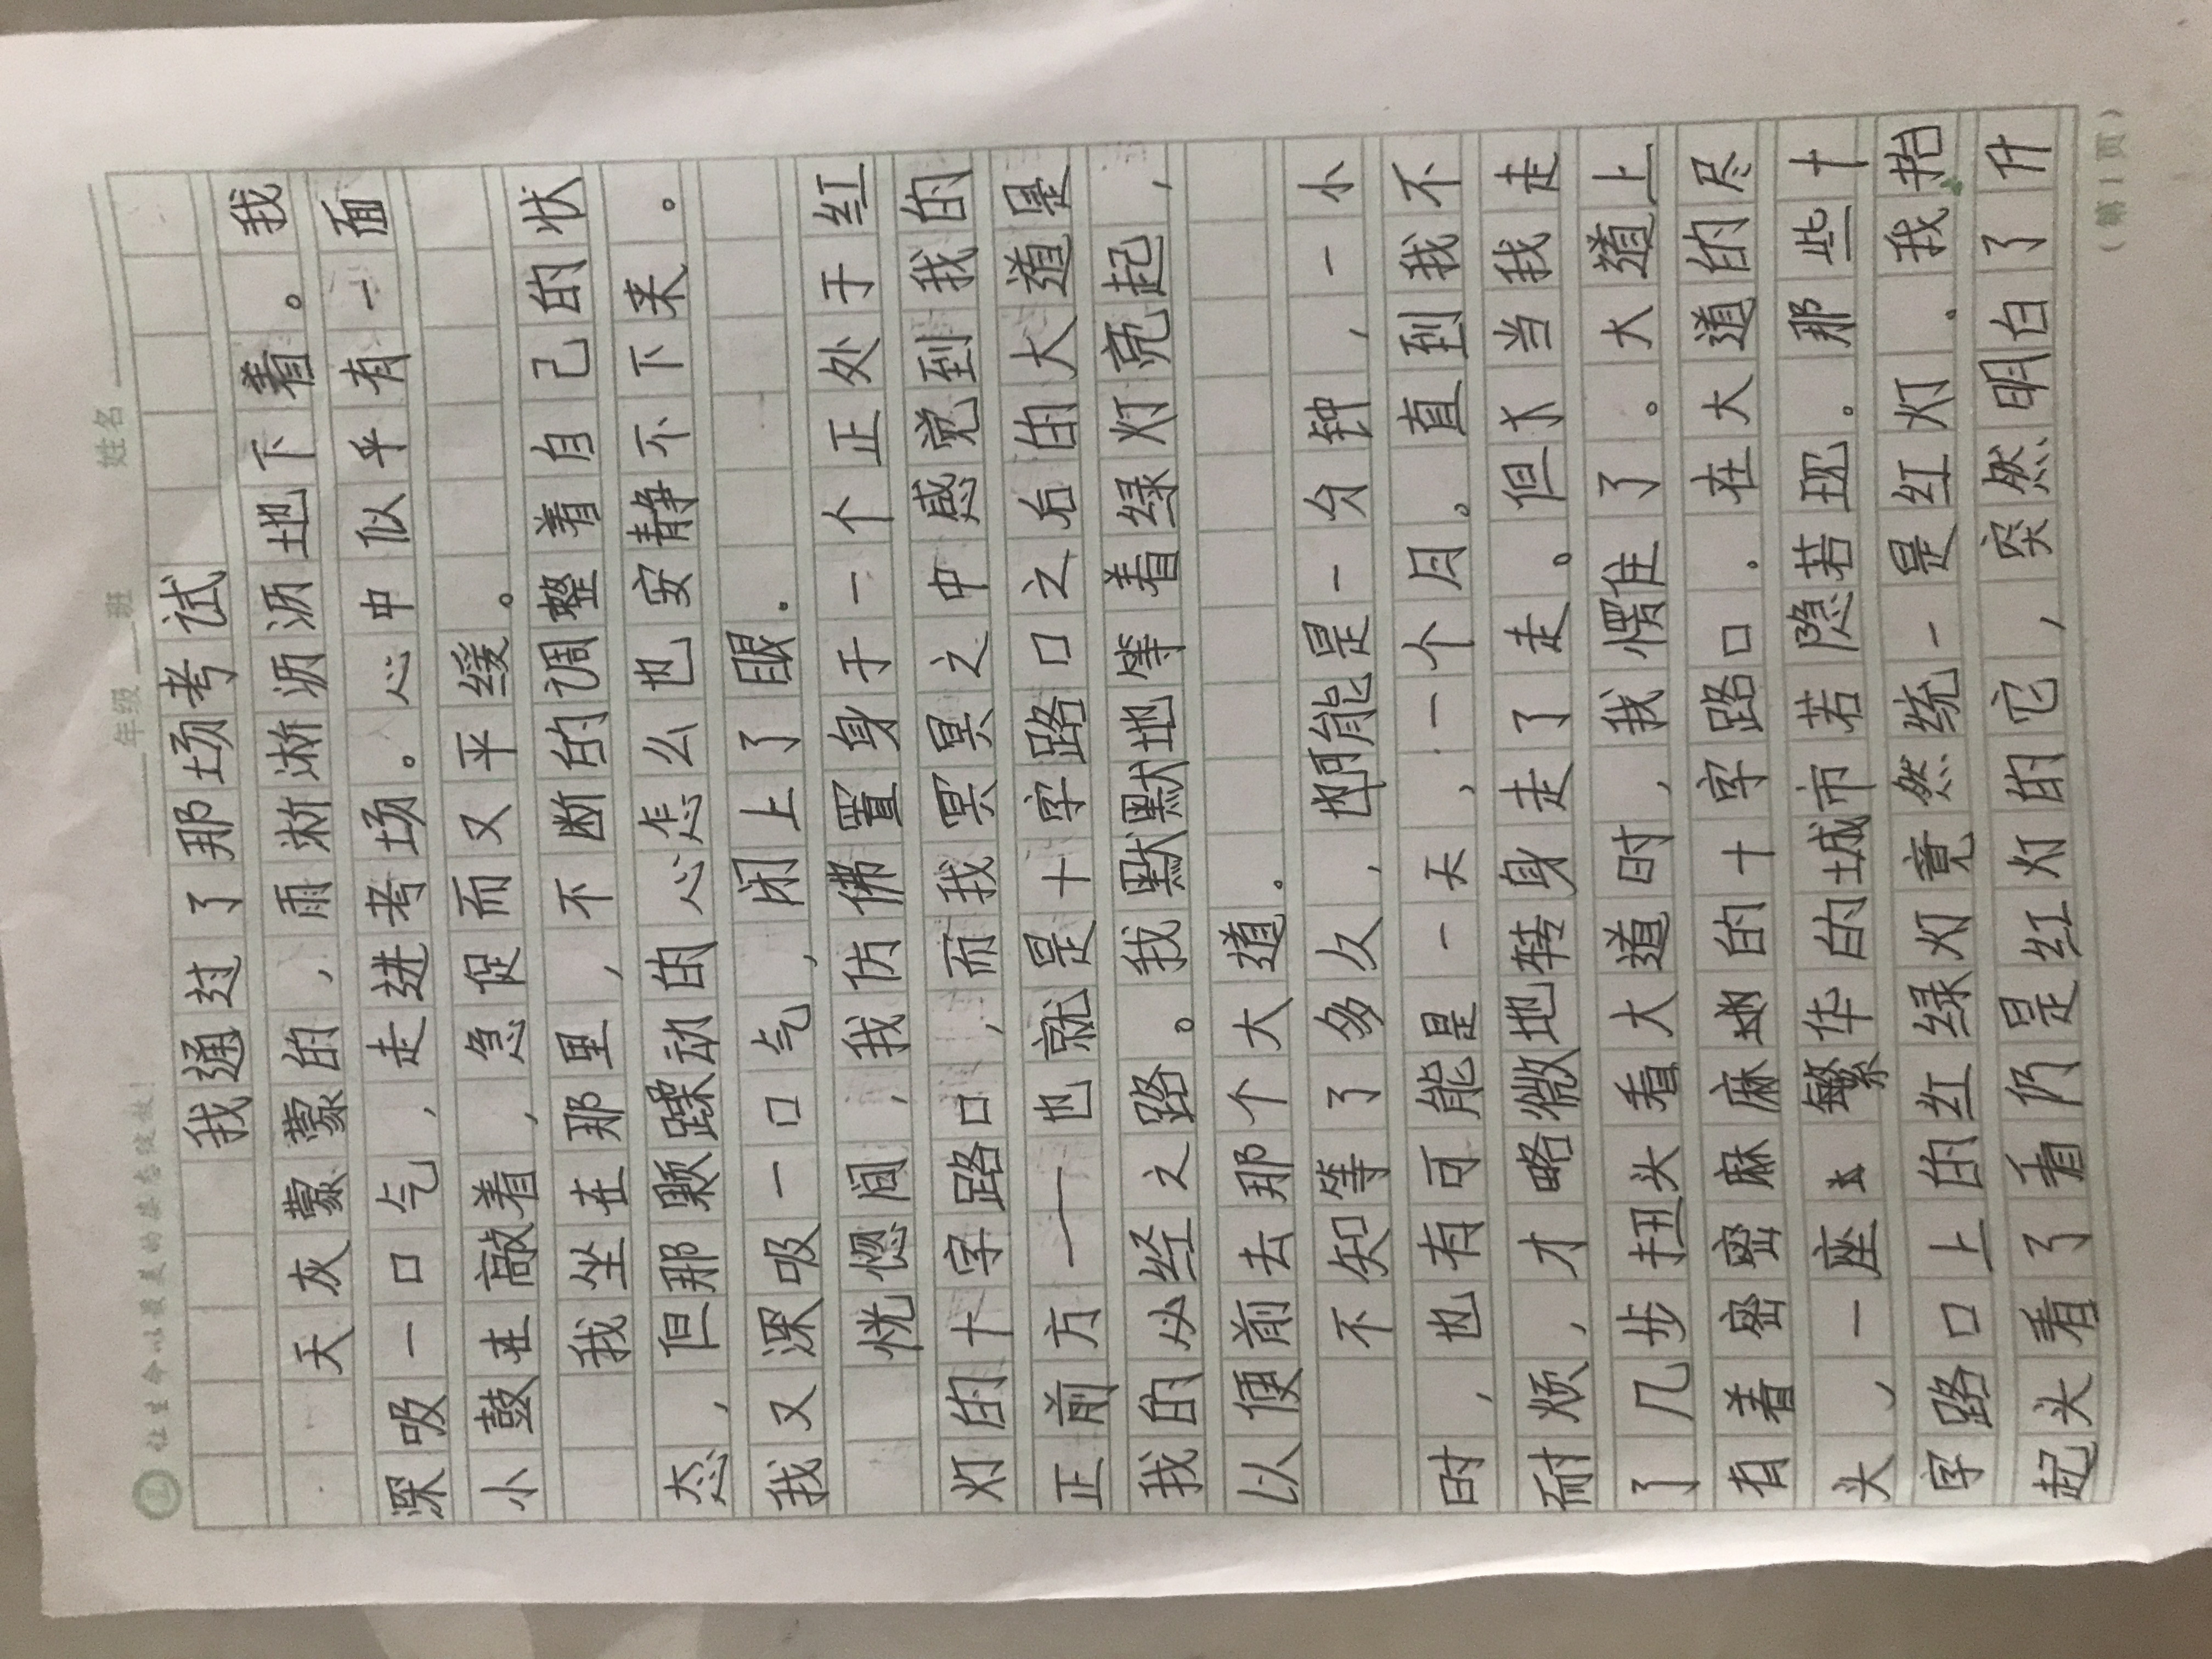 让生命以最美的姿态绽放！
年级 班 姓名
我通过了那场考试
天灰蒙蒙的，雨淅淅沥沥地下着。我
深吸一口气，走进考场。心中似乎有一面
小鼓在敲着，急促而又平缓。
我坐在那里，不断的调整着自己的状
态，但那颗躁动的心怎么也安静不下来。
我又深吸一口气，闭上了眼．
恍惚间，我仿佛置身于一个正处于红
灯的十字路口，而我冥冥之中感觉到我的
正前方——也就是十字路口之后的大道是
我的必经之路。我默默地等着绿灯亮起，
以便前去那个大道．
不知等了多久，也可能是一分钟，一小
时，也有可能是一天，一个月。直到我不
耐烦，才略微地转身走了走。但才当我走
了几步扭头看大道时，我愣住了。大道上
有着密密麻麻的十字路口．在大道的尽
头，一座繁华的城市若隐若现。那些十
字路口上的红绿灯竟然统一是红灯．我抬
起头看了看仍是红灯的它，突然明白了什
（第1页）